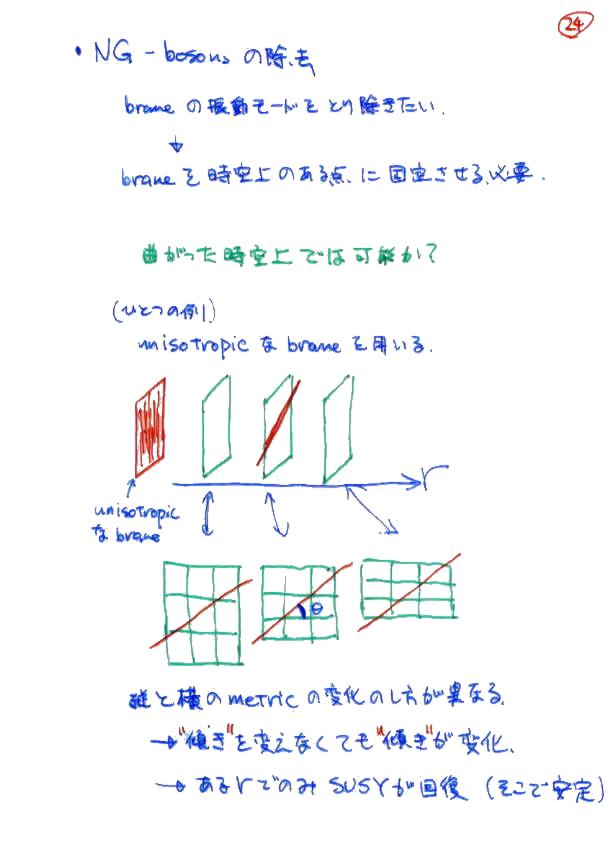 24
・NG-bosons の除去
brane の振動モードをとり除きたい.
↓
brane を時空上のある点に固定させる必要.
曲がった時空上では可能か?
(ひとつの例)
unisotropic な brane を用いる.
r
unisotropic
な brane
θ
縦と横の metric の変化のし方が異なる.
→ "傾き"を変えなくても"傾き"が変化.
→ ある r でのみ SUSY が回復 (そこで安定)